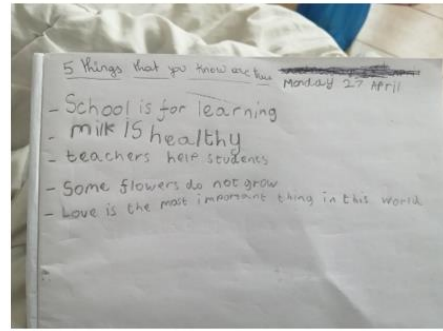 5 things that you know are true
Monday 27 April
- School is for learning
- milk is healthy
- teachers help students
- Some flowers do not grow
- Love is the most important thing in this world